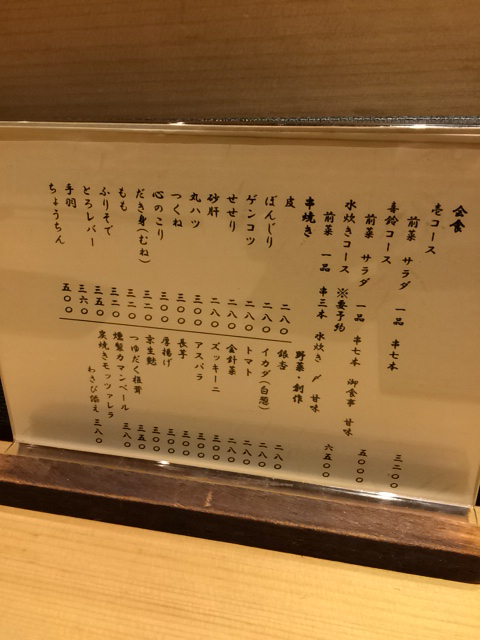 会食
壱コース
前菜 サラダ 一品 串七本 三二〇〇
コース
前菜 サラダ 一品 串七本 御食事 甘味 五〇〇〇
水炊きコース ※要予約
前菜 一品 串三本 水炊き 〆 甘味 六五〇〇
串焼き
皮 二八〇
ぼんじり 二八〇
ゲンコツ 二八〇
せせり 二八〇
砂肝 二八〇
丸ハツ 三〇〇
つくね 三〇〇
心のこり 三〇〇
だき身(むね) 三二〇
もも 三二〇
ふりそで 三二〇
とろレバー 三五〇
手羽 三六〇
ちょうちん 五〇〇
野菜・創作
銀杏 二八〇
イカダ(白葱) 二八〇
トマト 二八〇
金針菜 二八〇
ズッキーニ 三〇〇
アスパラ 三〇〇
長芋 三〇〇
厚揚げ 三〇〇
京生麩 三〇〇
つゆだく椎茸 三五〇
燻製カマンベール 三八〇
炭焼きモッツァレラ
わさび添え 三八〇